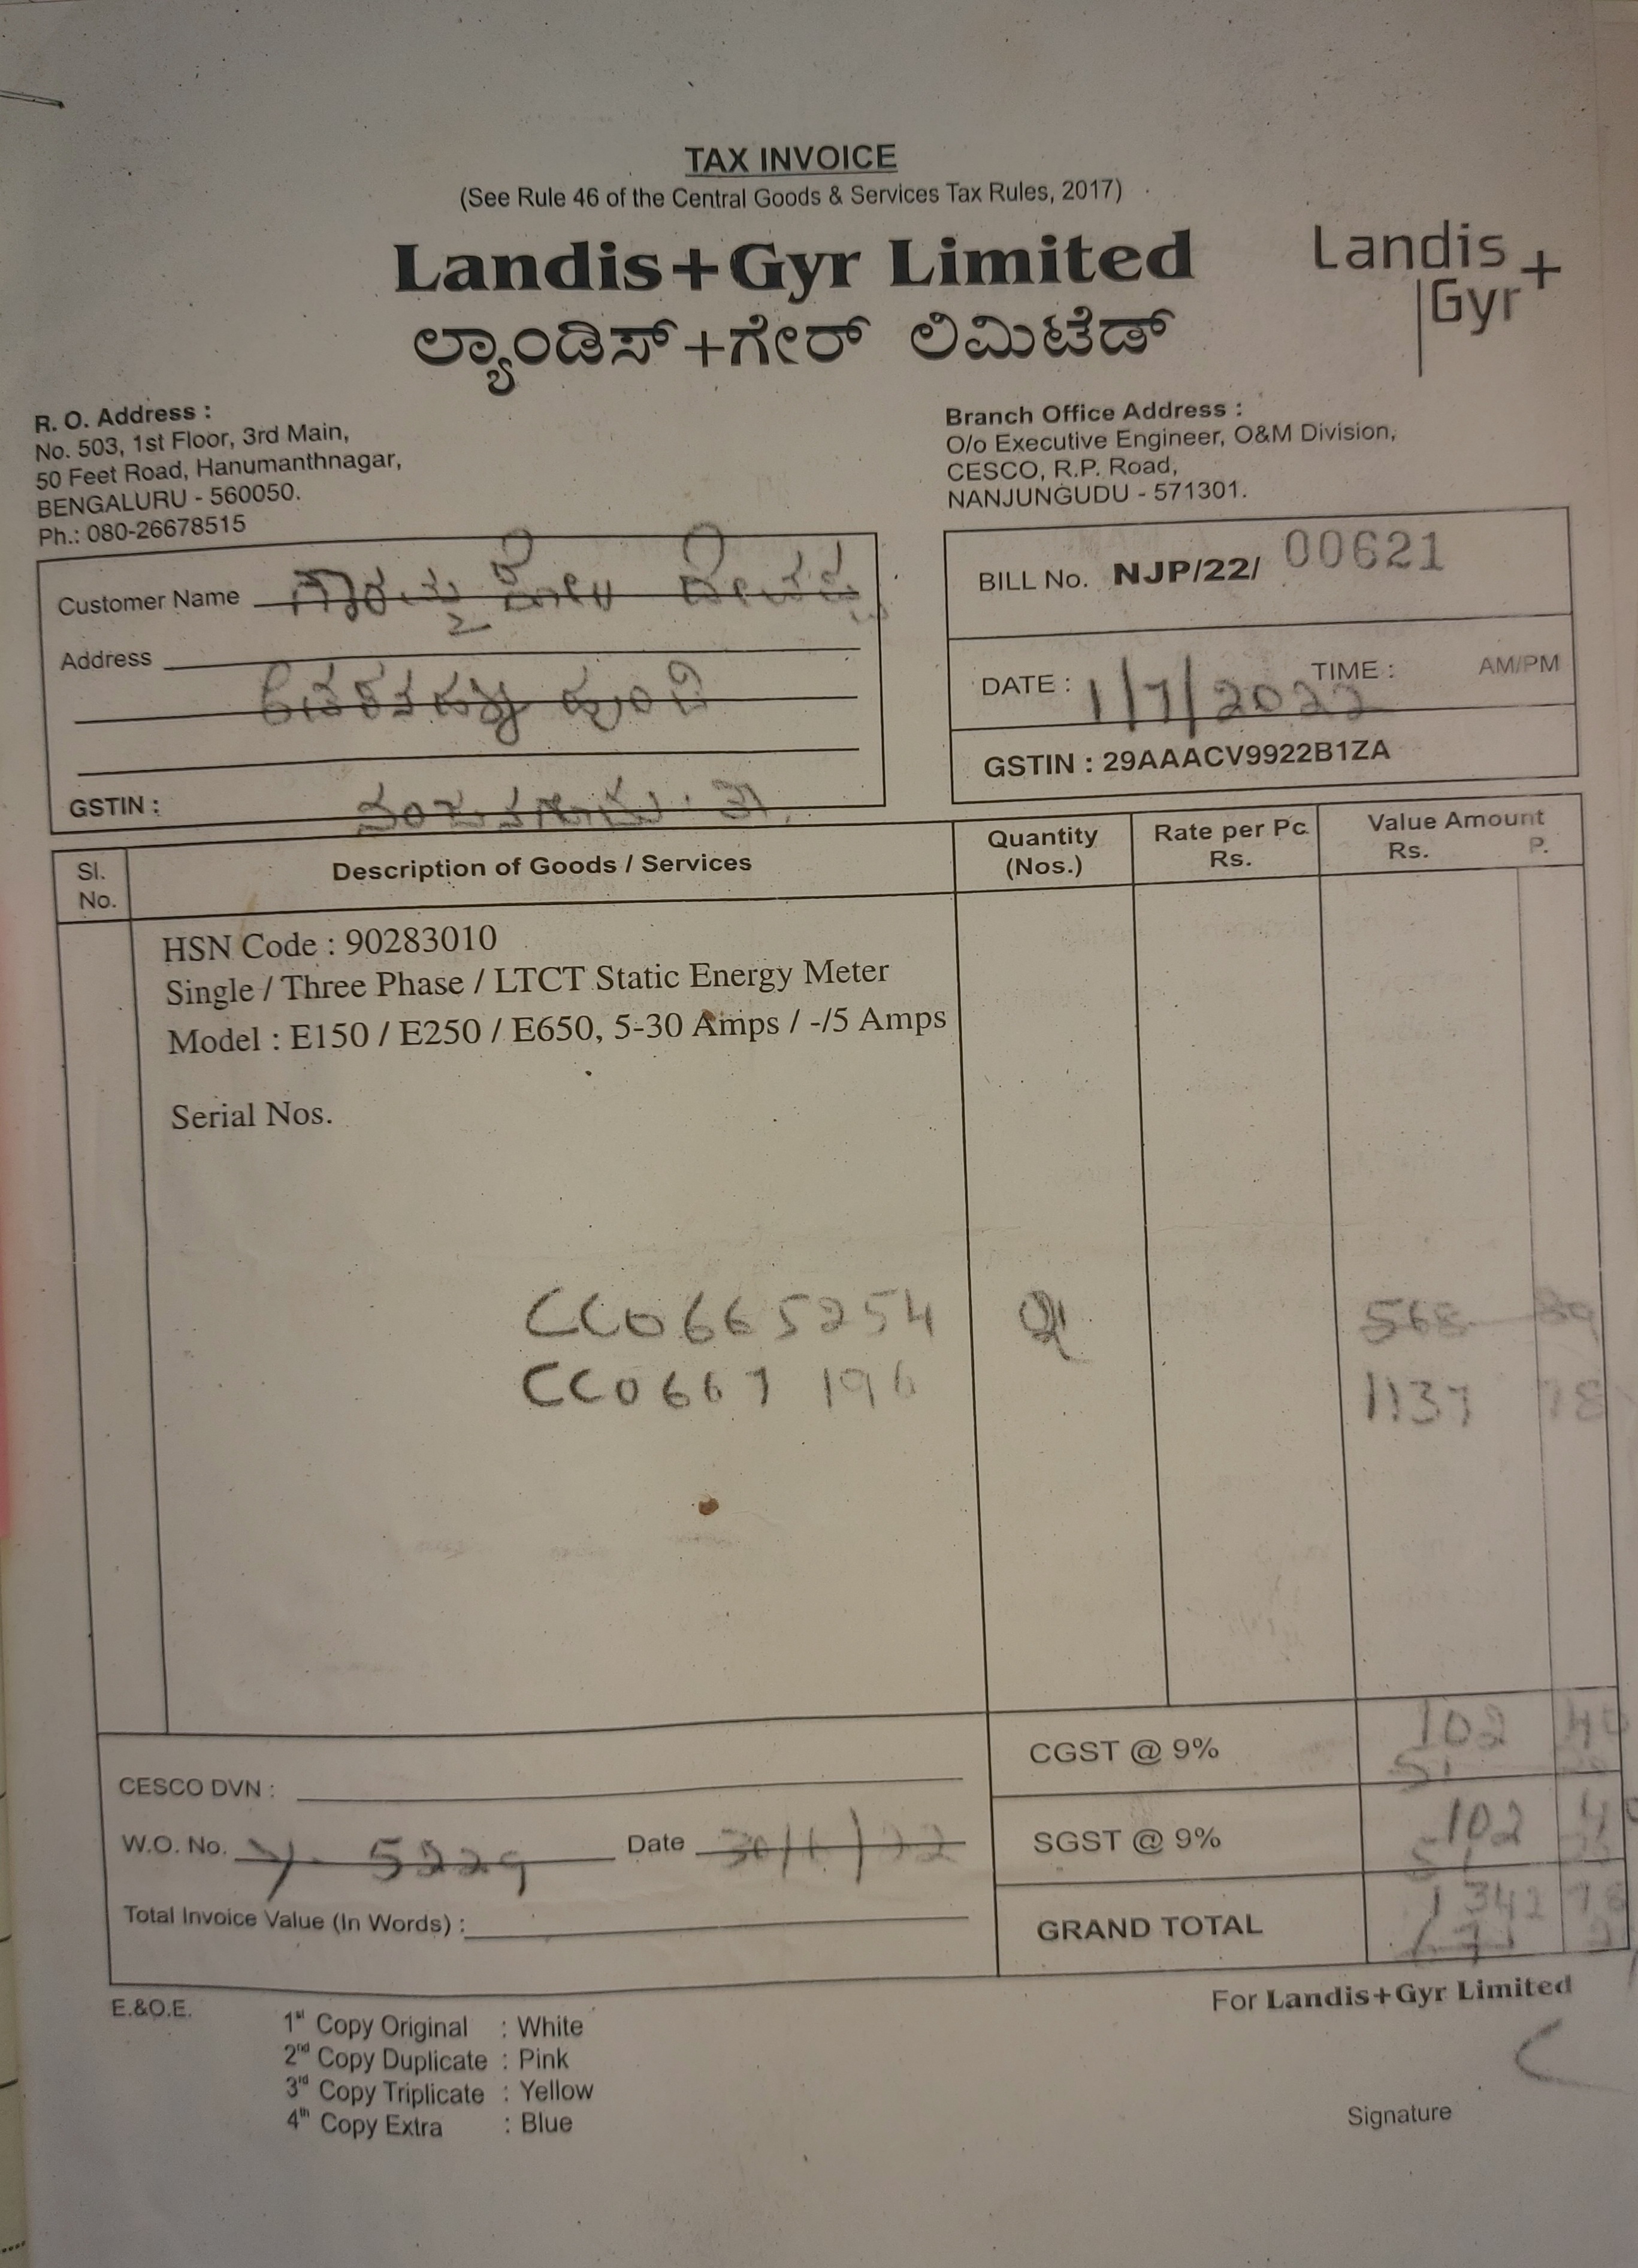 TAX INVOICE
(See Rule 46 of the Central Goods & Services Tax Rules, 2017)
Landis+Gyr Limited
Landis
Gyr+
ಲ್ಯಾಂಡಿಸ್+ಗೇರ್ ಲಿಮಿಟೆಡ್
R. O. Address :
No. 503, 1st Floor, 3rd Main,
50 Feet Road, Hanumanthnagar,
BENGALURU - 560050.
Ph.: 080-26678515
Branch Office Address :
O/o Executive Engineer, O&M Division,
CESCO, R.P. Road,
NANJUNGUDU - 571301.
Customer Name
Address
GSTIN :
BILL No. NJP/22/ 00621
DATE : 1/7/2022 TIME : AM/PM
GSTIN : 29AAACV9922B1ZA
Sl. No. Description of Goods / Services Quantity (Nos.) Rate per Pc Rs. Value Amount Rs. P.
HSN Code : 90283010
Single / Three Phase / LTCT Static Energy Meter
Model : E150 / E250 / E650, 5-30 Amps / -/5 Amps
Serial Nos.
CC0665254 568 89
CC0667196 1137 78
CGST @ 9% 102 40
CESCO DVN :
SGST @ 9% 102 40
W.O. No. 5229 Date
Total Invoice Value (In Words) :
GRAND TOTAL 1342
E.&O.E.
For Landis+Gyr Limited
1st Copy Original : White
2nd Copy Duplicate : Pink
3rd Copy Triplicate : Yellow
4th Copy Extra : Blue
Signature